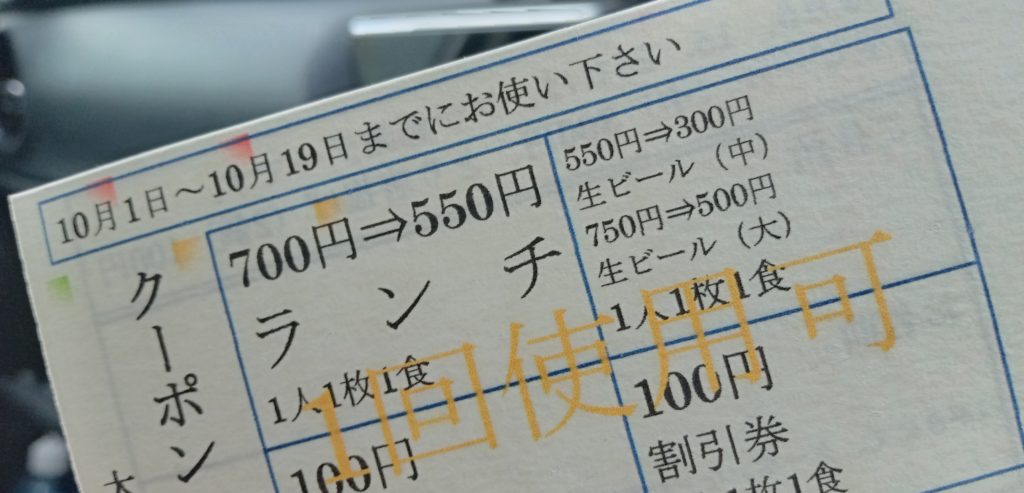 10月1日～10月19日までにお使い下さい
クーポン
700円⇒550円
ランチ
1人1枚1食
550円⇒300円
生ビール（中）
750円⇒500円
生ビール（大）
1人1枚1食
1回使用可
100円
100円
割引券
1枚1食